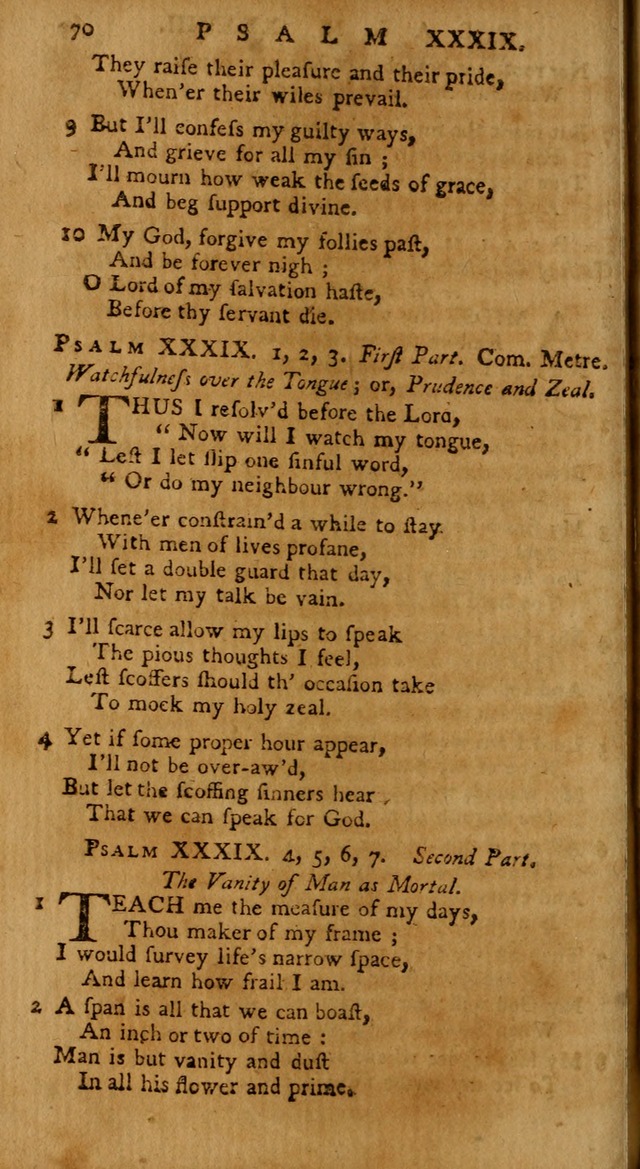 70 PSALM XXXIX.
They raiſe their pleaſure and their pride,
When'er their wiles prevail.
9 But I'll confeſs my guilty ways,
And grieve for all my ſin ;
I'll mourn how weak the ſeeds of grace,
And beg ſupport divine.
10 My God, forgive my follies paſt,
And be forever nigh ;
O Lord of my ſalvation haſte,
Before thy ſervant die.
PSALM XXXIX. 1, 2, 3. Firſt Part. Com. Metre.
Watchfulneſs over the Tongue ; or, Prudence and Zeal.
1 THUS I reſolv'd before the Lord,
“ Now will I watch my tongue,
“ Leſt I let ſlip one ſinful word,
“ Or do my neighbour wrong.”
2 Whene'er conſtrain'd a while to ſtay
With men of lives profane,
I'll ſet a double guard that day,
Nor let my talk be vain.
3 I'll ſcarce allow my lips to ſpeak
The pious thoughts I feel,
Leſt ſcoffers ſhould th' occaſion take
To mock my holy zeal.
4 Yet if ſome proper hour appear,
I'll not be over-aw'd,
But let the ſcoffing ſinners hear
That we can ſpeak for God.
PSALM XXXIX. 4, 5, 6, 7. Second Part.
The Vanity of Man as Mortal.
1 TEACH me the meaſure of my days,
Thou maker of my frame ;
I would ſurvey life's narrow ſpace,
And learn how frail I am.
2 A ſpan is all that we can boaſt,
An inch or two of time :
Man is but vanity and duſt
In all his flower and prime.